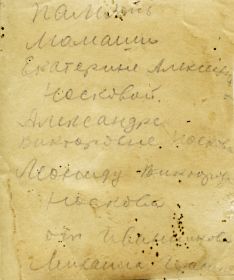 Память
Мамаши
Екатерине Алексе
Носковой.
Александре
Викторовне Носков
Леониду Виктор
Носкова
от Иванникова
Михаила